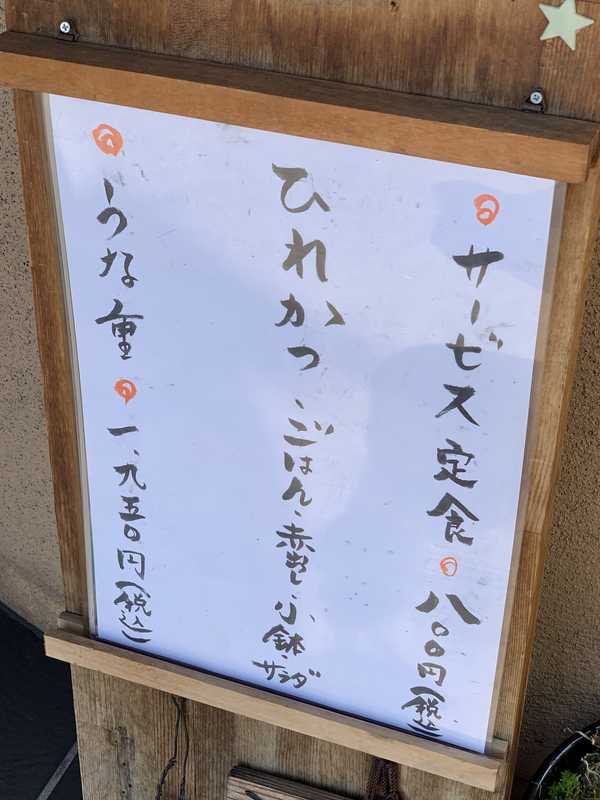 サービス定食 八〇〇円(税込)
ひれかつ・ごはん・赤だし・小鉢・サラダ
うな重 一、九五〇円(税込)